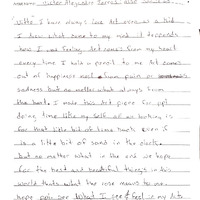 "Hello" I have always love Art even as a kid
I draw what come to my mind it depends
how I was feeling, Art comes from my heart
every time I hold a pencil to me Art comes
out of happiness and from pain or
sadness but no matter what always from
the heart. I made two Art piece for ppl
doing time like my self or are looking is
for that little bit of home back even if
is a little bit of sand in the place.
but no matter what in the end we hope
for the best and beautiful things in this
world thats what the rose means to me
hope ppl see What I see & feel in my Arts